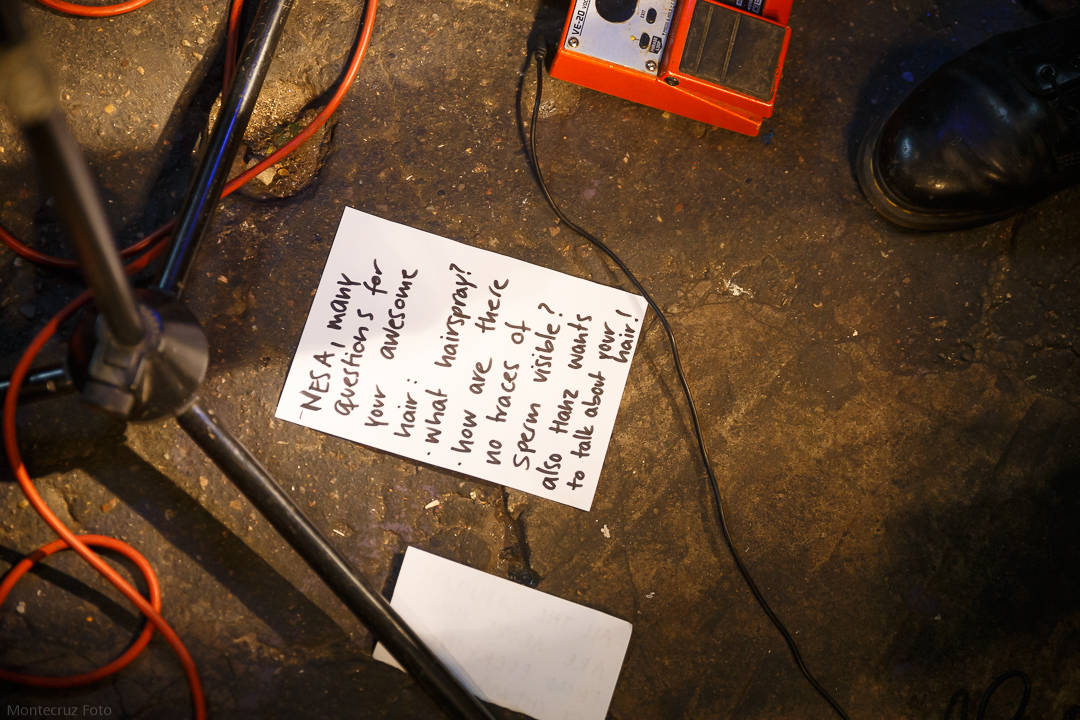 VE-20
NESA, many
questions for
your awesome
hair:
· what hairspray?
· how are there
no traces of
Sperm visible?
also Hanz wants
to talk about your
hair!
Montecruz Foto